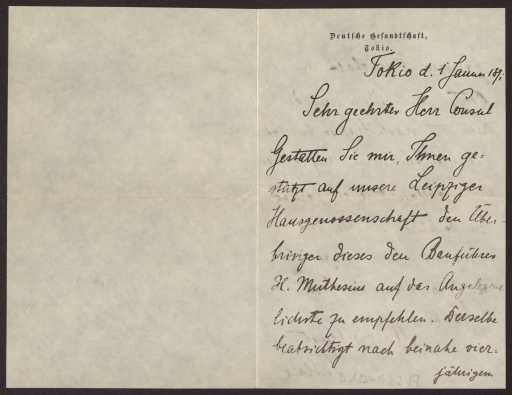 Deutsche Gesandtschaft,
Tokio.
Tokio d. 1 Januar
Sehr geehrter Herr Consul
Gestatten Sie mir, Ihnen ge-
stützt auf unsere Leipziger
Hausgenossenschaft den Über-
bringer dieses den Bauführer
H. Muthesius auf das Angelegent-
lichste zu empfehlen. Derselbe
beabsichtigt nach beinahe vier-
jährigem